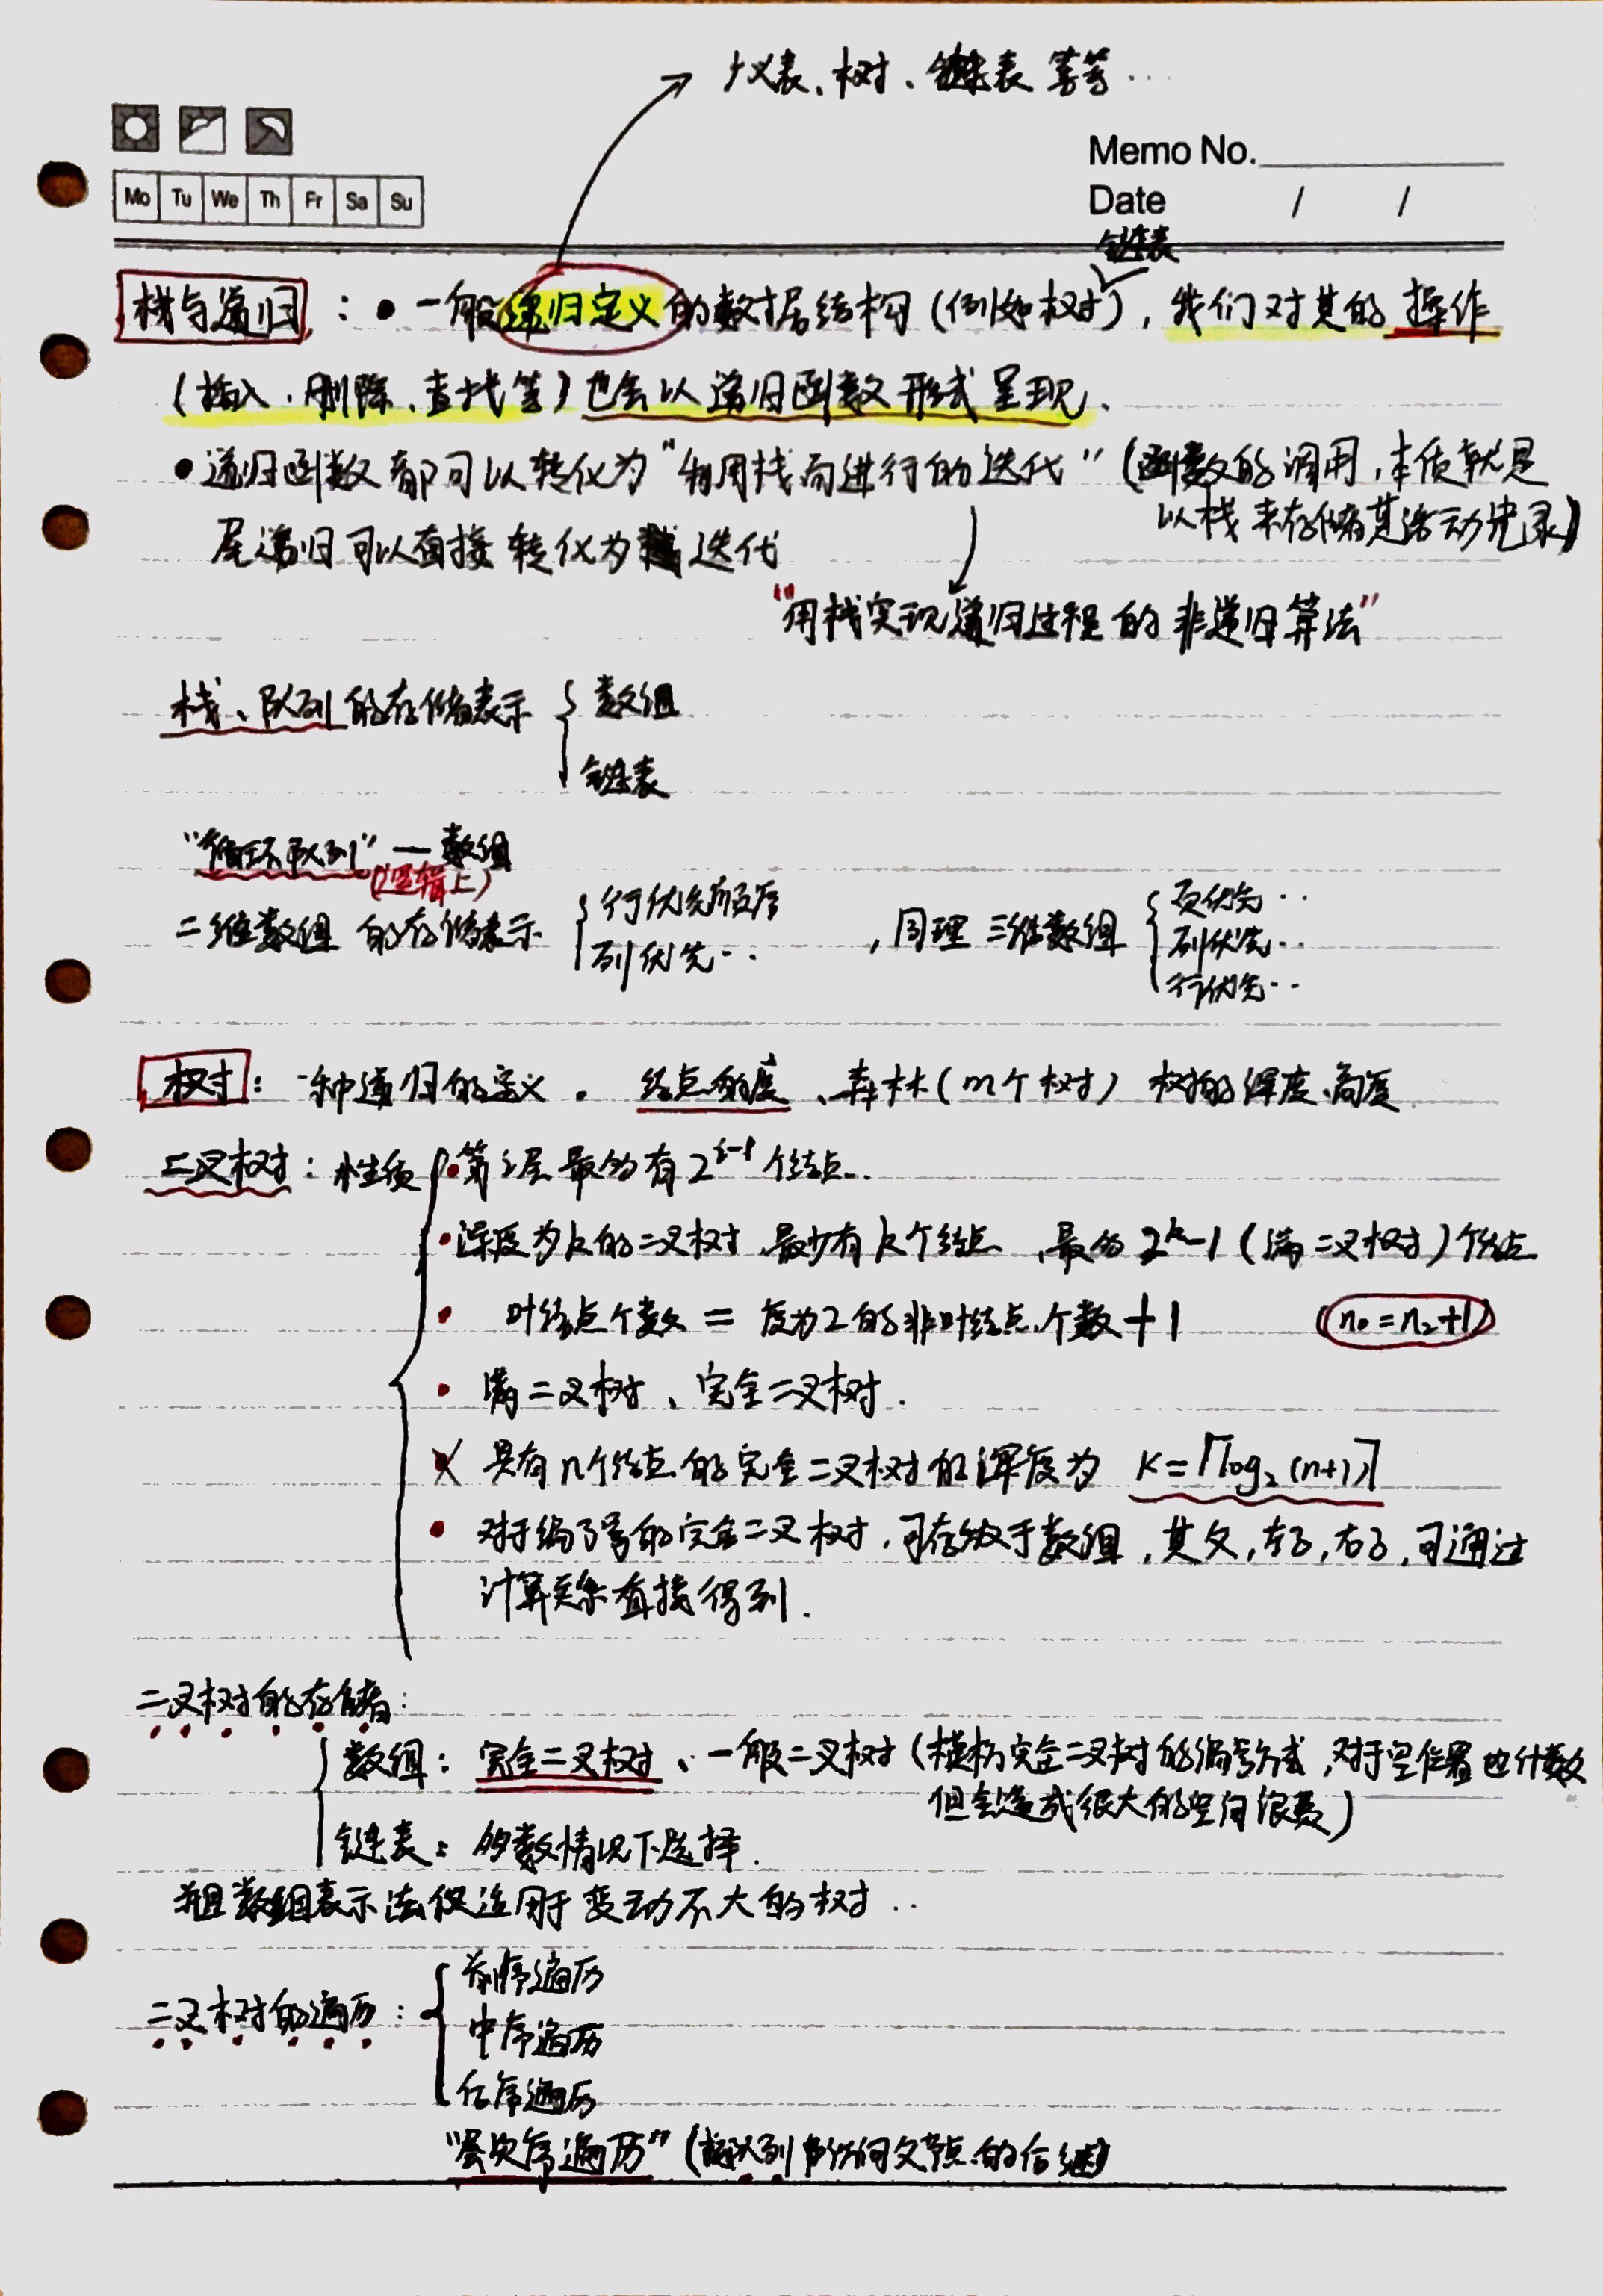 广义表、树、链表 等等…
Memo No.
Mo Tu We Th Fr Sa Su
Date / /
链表
栈与递归：•一般递归定义的数据结构（例如树），我们对其的操作
（插入、删除、查找等）也会以递归函数形式呈现、
•递归函数都可以转化为“利用栈而进行的迭代”（函数的调用，本质就是
以栈来存储其活动记录）
尾递归可以直接转化为 迭代
“用栈实现递归过程的非递归算法”
栈、队列的存储表示 { 数组
链表
“循环队列”—数组
（逻辑上）
二维数组 的存储表示 { 行优先顺序
列优先…
，同理 三维数组 { 页优先…
列优先…
行优先…
树：一种递归的定义。 结点的度、森林（m个树） 树的深度、高度
二叉树：性质 { •第i层最多有2^{i-1}个结点..
•深度为k的二叉树 最少有k个结点，最多2^k-1（满二叉树）个结点
• 叶结点个数 = 度为2的非叶结点个数+1 (n₀=n₂+1)
• 满二叉树、完全二叉树.
具有n个结点的完全二叉树的深度为 K=⌈log₂(n+1)⌉
• 对于编了号的完全二叉树，可存放于数组，其父，左子，右子，可通过
计算关系直接得到.
二叉树的存储：
{ 数组：完全二叉树、一般二叉树（模仿完全二叉树的编号方式，对于空位置也计数
但会造成很大的空间浪费）
链表：多数情况下选择.
数组表示法仅适用于变动不大的树..
二叉树的遍历：{ 前序遍历
中序遍历
后序遍历
“层次序遍历”（队列 父节点的后继）